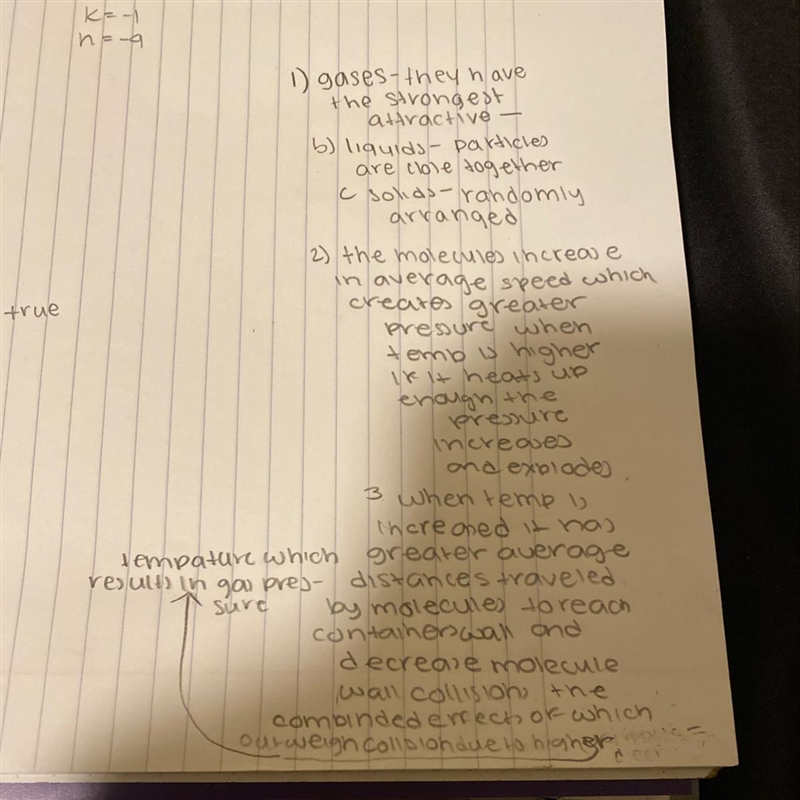 k = -1
n = -9
true
1) gases - they have
the strongest
attractive —
b) liquids - particles
are close together
c solids - randomly
arranged
2) the molecules increase
in average speed which
creates greater
pressure when
temp is higher
if it heats up
enough the
pressure
increases
and explodes.
3 when temp is
increased it has
greater average
distances traveled
by molecules to reach
containers wall and
decrease molecule
wall collisions. the
combinded effects of which
ourweigh collision due to higher
tempature which
results in gas pres-
sure